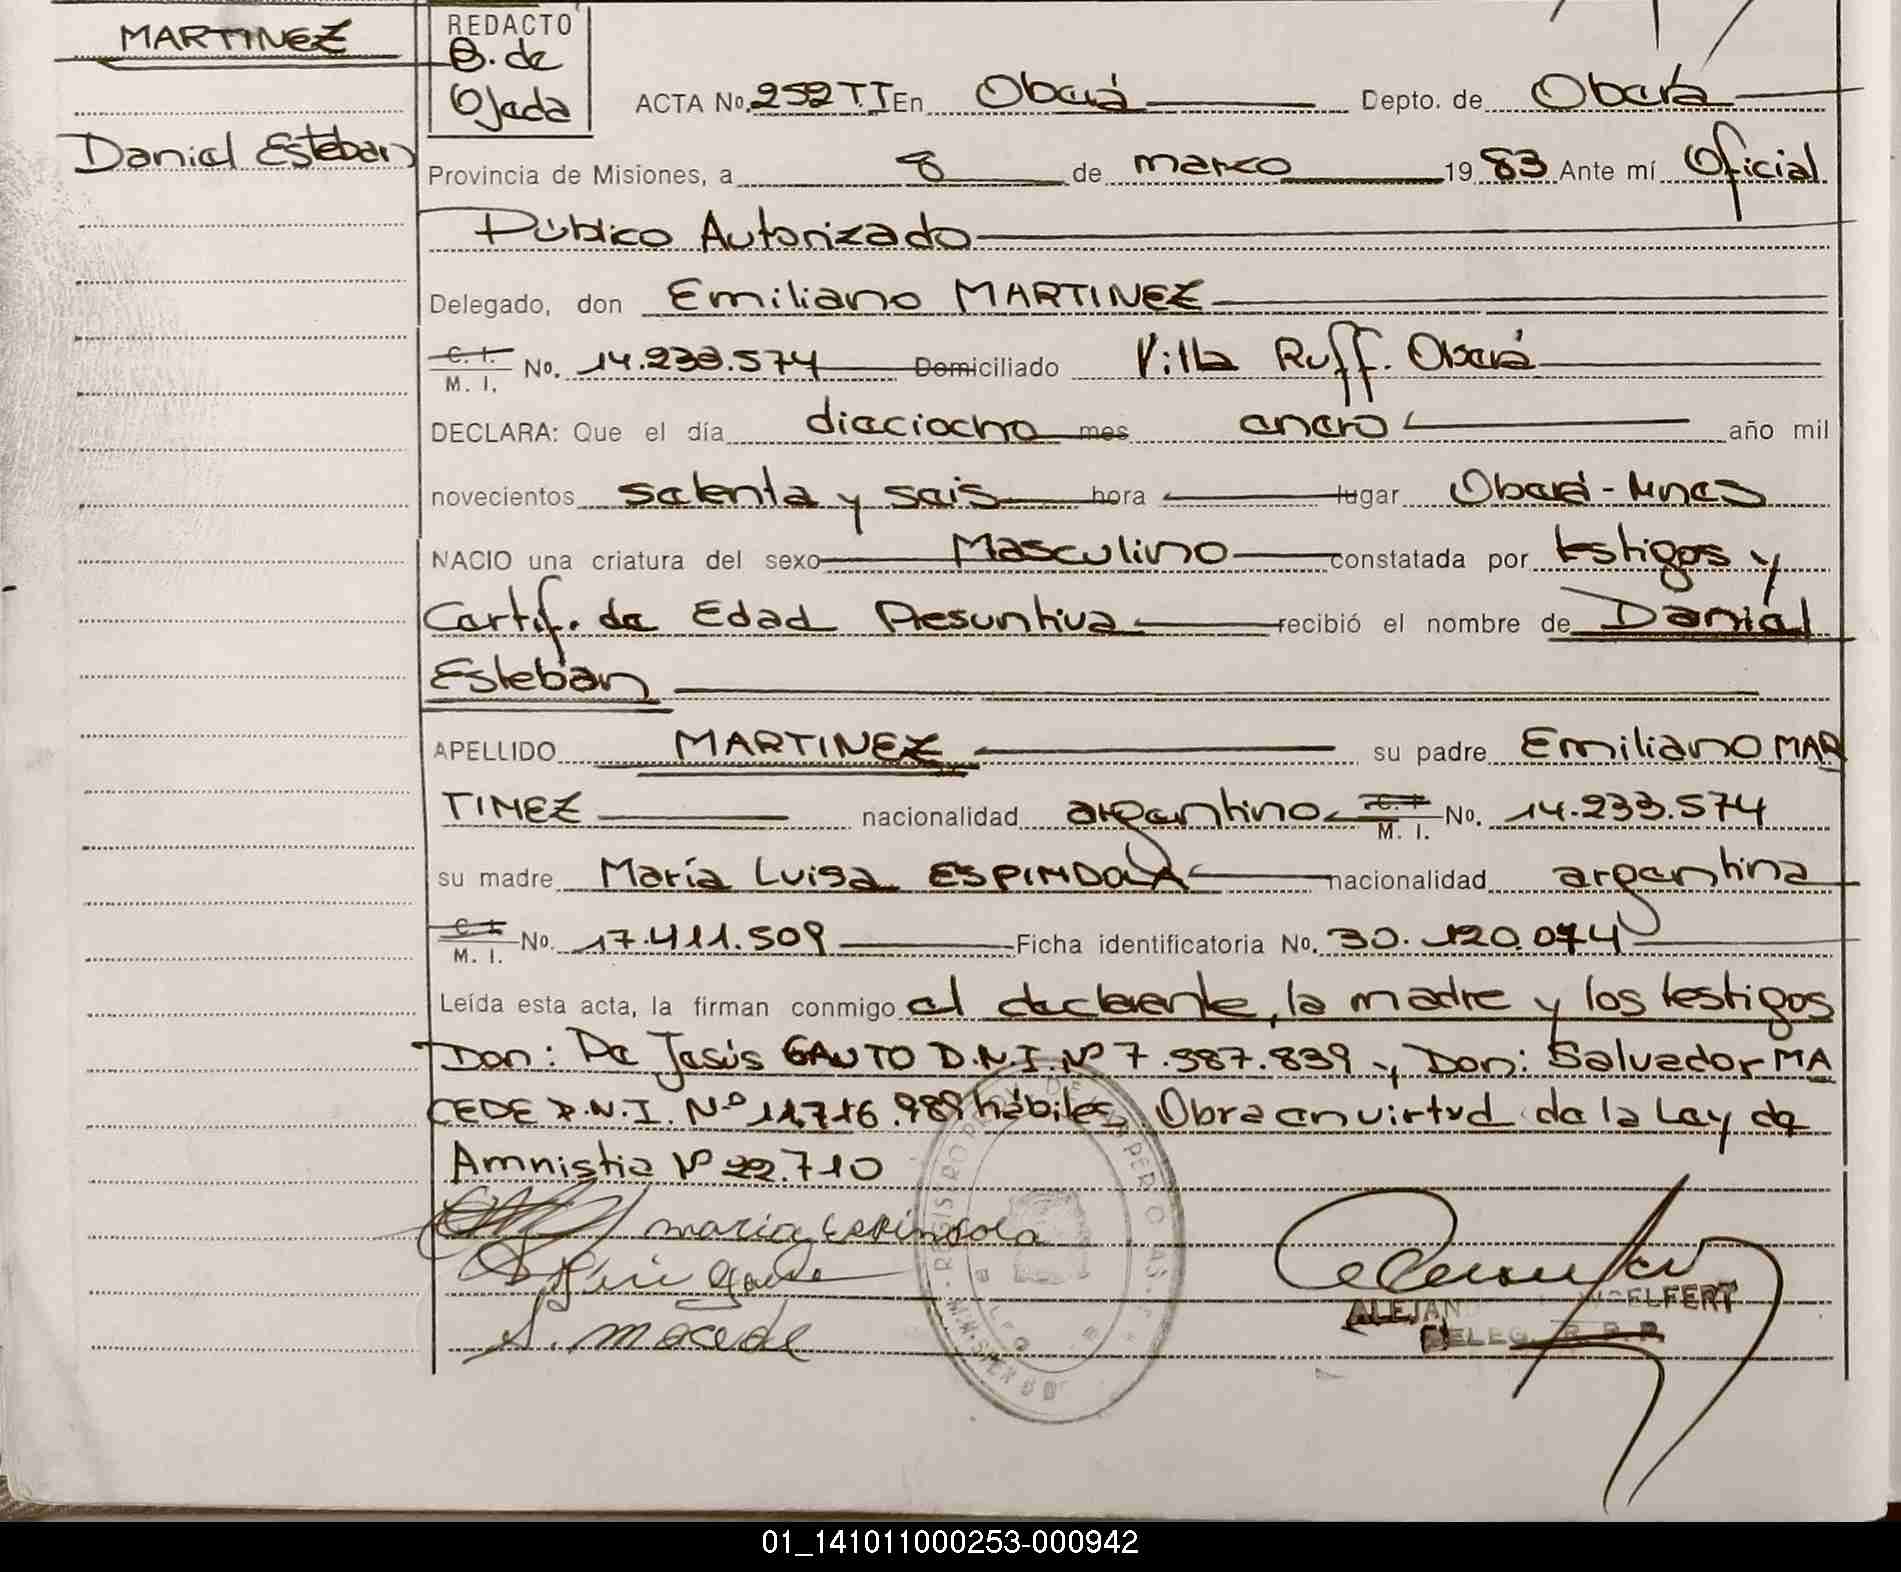 MARTINEZ
Daniel Esteban
REDACTO
B. de
Ojeda
ACTA No. 252 T.I En Oberá Depto. de Oberá
Provincia de Misiones, a 8 de marzo 19 83 Ante mí Oficial
Público Autorizado
Delegado, don Emiliano MARTINEZ
C. I.
M. I. No. 14.233.574 Domiciliado Villa Ruff. Oberá
DECLARA: Que el día dieciocho mes enero año mil
novecientos setenta y seis hora lugar Oberá - Mnes
NACIO una criatura del sexo Masculino constatada por testigos y
Certif. de Edad Presuntiva recibió el nombre de Daniel
Esteban
APELLIDO MARTINEZ su padre Emiliano MAR
TINEZ nacionalidad argentino C. I. M. I. No. 14.233.574
su madre María Luisa ESPINDOLA nacionalidad argentina
C. I.
M. I. No. 17.411.509 Ficha identificatoria No. 30.120.074
Leída esta acta, la firman conmigo el declarente, la madre y los testigos
Don: De Jesús GAUTO D.N.I. Nº 7.587.839 y Don: Salvador MA
CEDE D.N.I. Nº 11.716.989 hábiles. Obra en virtud de la Ley de
Amnistia Nº 22.710
maria Espindola
S. macede
ALEJAN
DELEG. R. P. P.
01_141011000253-000942